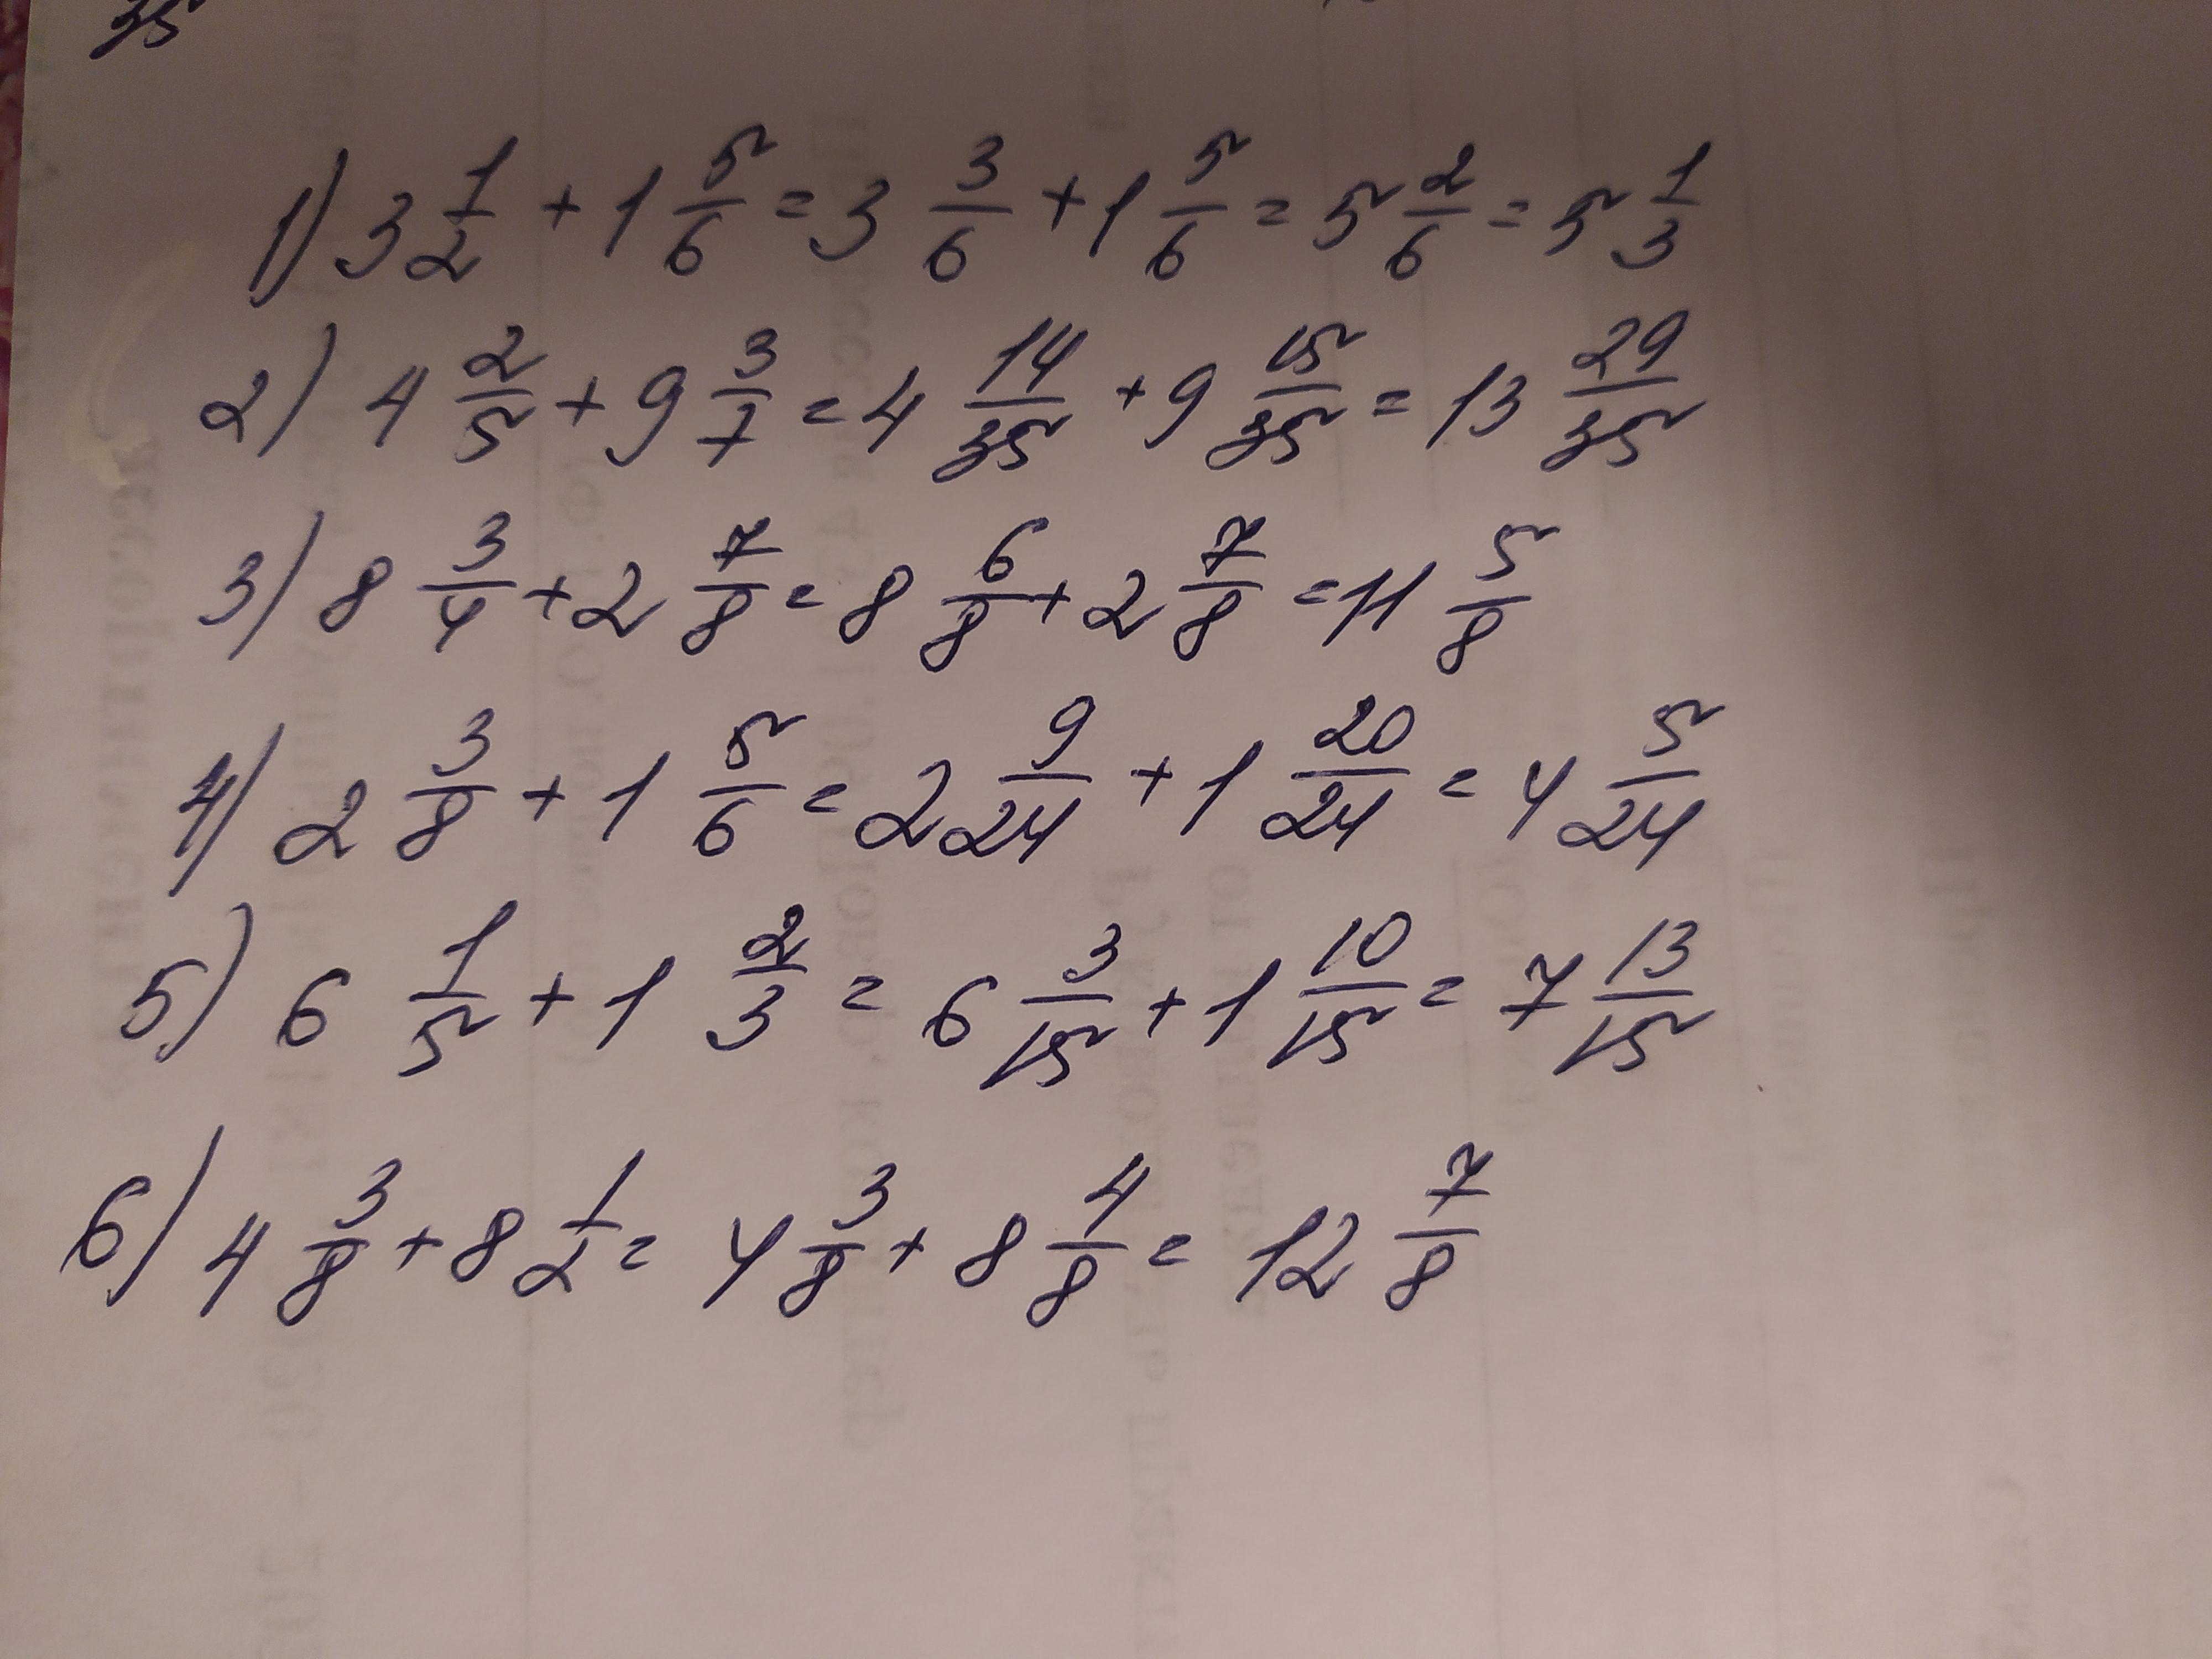 35
1) 3 1/2 + 1 5/6 = 3 3/6 + 1 5/6 = 5 2/6 = 5 1/3
2) 4 2/5 + 9 3/7 = 4 14/35 + 9 15/35 = 13 29/35
3) 8 3/4 + 2 7/8 = 8 6/8 + 2 7/8 = 11 5/8
4) 2 3/8 + 1 5/6 = 2 9/24 + 1 20/24 = 4 5/24
5) 6 1/5 + 1 2/3 = 6 3/15 + 1 10/15 = 7 13/15
6) 4 3/8 + 8 1/2 = 4 3/8 + 8 4/8 = 12 7/8